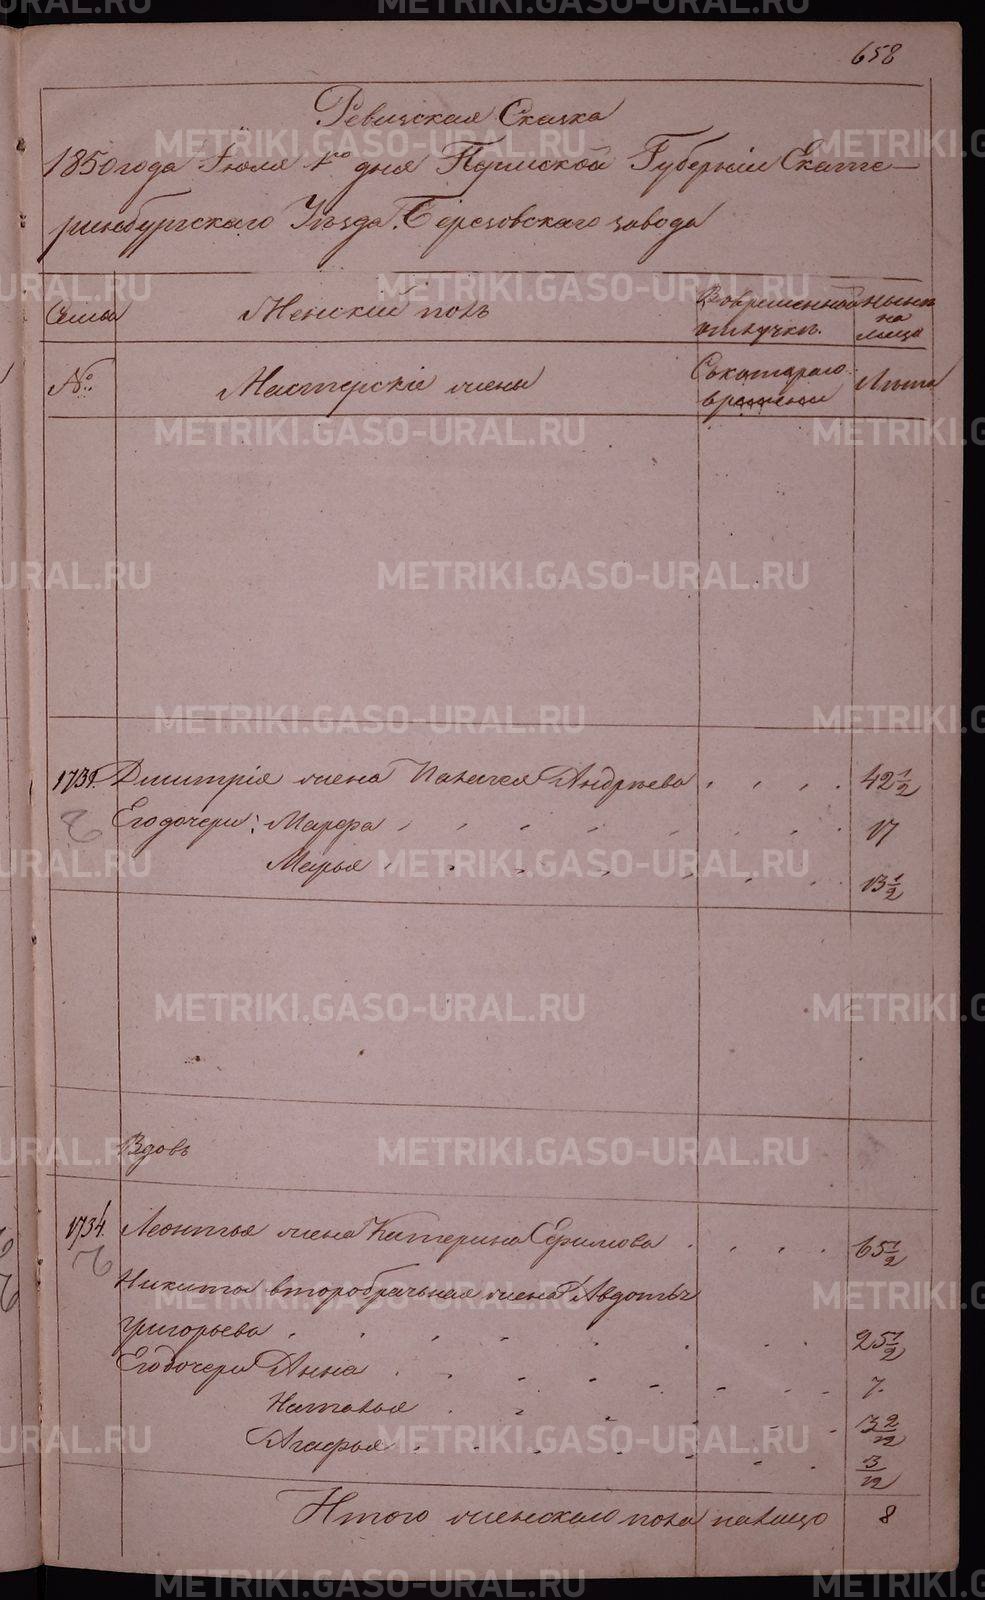 658
Ревизская Сказка
1850 года Iюля 1го дня Пермской Губернiи Екате-
ринбургскаго Уѣзда Березовскаго завода
Семьи
Женский полъ
Во временной отлучкѣ
Нынѣ на лицо
№
Мастерскiе жены
Съ котораго времени
Лѣта
1731. Дмитрiя жена Палагея Андрѣева 42 1/2
Его дочери: Марфа 17
Марья 13 1/2
Вдовъ
1734. Леонтья жена Катерина Ефимова 65 1/2
Никиты второбрачная жена Авдотья
Григорьева 25 1/2
Его дочери Анна 7.
Наталья 3 2/12
Агафья 3/12
Итого женскаго пола налицо 8
METRIKI.GASO-URAL.RU